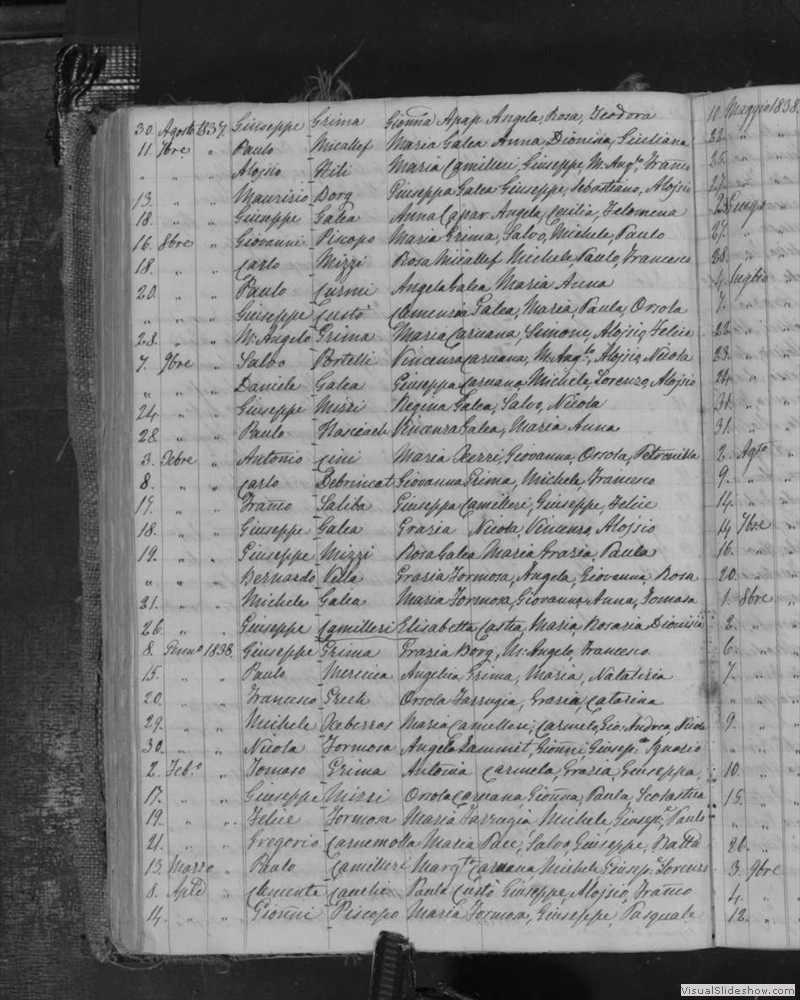 30. Agosto 1837. Giuseppe Grima Gionña Apap Angela, Rosa, Teodora
11. 7bre " Paulo Micallef Maria Galea Anna, Dionisia, Giuliana
" " " Aloisio Maria Camilleri, Giuseppe, M. Angº, Franco
13. " " Maurizio Borg Giuseppa Galea Giuseppe, Sebastiano, Aloisio
18. " " Giuseppe Galea Anna Capar Angela, Cecilia, Filomena
16. 8bre " Giovanni Piscopo Maria Grima, Salvo, Michele, Paulo
18. " " Carlo Mizzi Rosa Micallef Michele, Paulo, Francesco
20. " " Paulo Curmi Angela Galea Maria Anna
" " " Giuseppe Custò Clemenzia Galea, Maria, Paula, Orsola
28. " " M. Angelo Grima Maria Caruana, Simone, Aloisio, Felice
7. 9bre " Salvo Portelli Vincenza Caruana, M. Angº, Aloisio, Nicola
" " " Daniele Galea Giuseppa Caruana Michele, Lorenzo, Aloisio
24. " " Giuseppe Mizzi Regina Galea, Salvo, Nicola
28. " " Paulo Vincenza Galea, Maria Anna
3. Xbre " Antonio Cini Maria Giovanna, Orsola, Petronilla
8. " " Carlo Debrincat Giovanna Grima, Michele, Francesco
17. " " Franco Saliba Giuseppa Camilleri, Giuseppe, Felice
18. " " Giuseppe Galea Grazia Nicola, Vincenzo, Aloisio
19. " " Giuseppe Mizzi Rosa Galea Maria Grazia, Paula
" " " Bernardo Vella Grazia Formosa, Angela, Giovanna, Rosa
21. " " Michele Galea Maria Formosa, Giovanna, Anna, Tomasa
26. " " Giuseppe Camilleri Elisabetta Maria Rosaria Dionisia
8. Gennº 1838. Giuseppe Grima Grazia Borg, M. Angelo, Francesco
15. " " Paulo Mercieca Angelica Grima, Maria, Natalizia
20. " " Francesco Grech Orsola Farrugia, Grazia, Catarina
29. " " Michele Xeberras Maria Camilleri, Carmelo, Gio. Andrea, Nicola
30. " " Nicola Formosa Angela Sammut, Gionñi, Giusepe Ignazio
2. Febº " Tomaso Grima Antonia Carmela, Grazia, Giuseppa
17. " " Giuseppe Mizzi Orsola Caruana Gionña, Paula, Scolastica
19. " " Felice Formosa Maria Farrugia Michele, Giusepe Paulo
21. " " Gregorio Maria Pace, Salvo, Giuseppe, Batta
13. Marzo " Paulo Camilleri Margta Caruana Michele, Giusepe Lorenzo
8. Aple " Clemente Paula Custò Giuseppe, Aloisio, Franco
14. " " Gionñi Piscopo Maria Formosa, Giuseppe, Pasquale
10. Maggio 1838.
22. " "
25. " "
27. " "
Giugo
27. " "
28. " "
4. Luglio "
7. " "
22. " "
23. " "
24. " "
31. " "
31. " "
2. Agto
9. "
14. "
14. 7bre
16. "
20. "
1. 8bre
2. "
6. "
7. "
" "
9. "
" "
10. "
15. "
" "
26. "
3. 9bre
4. "
12. "
VisualSlideshow.com